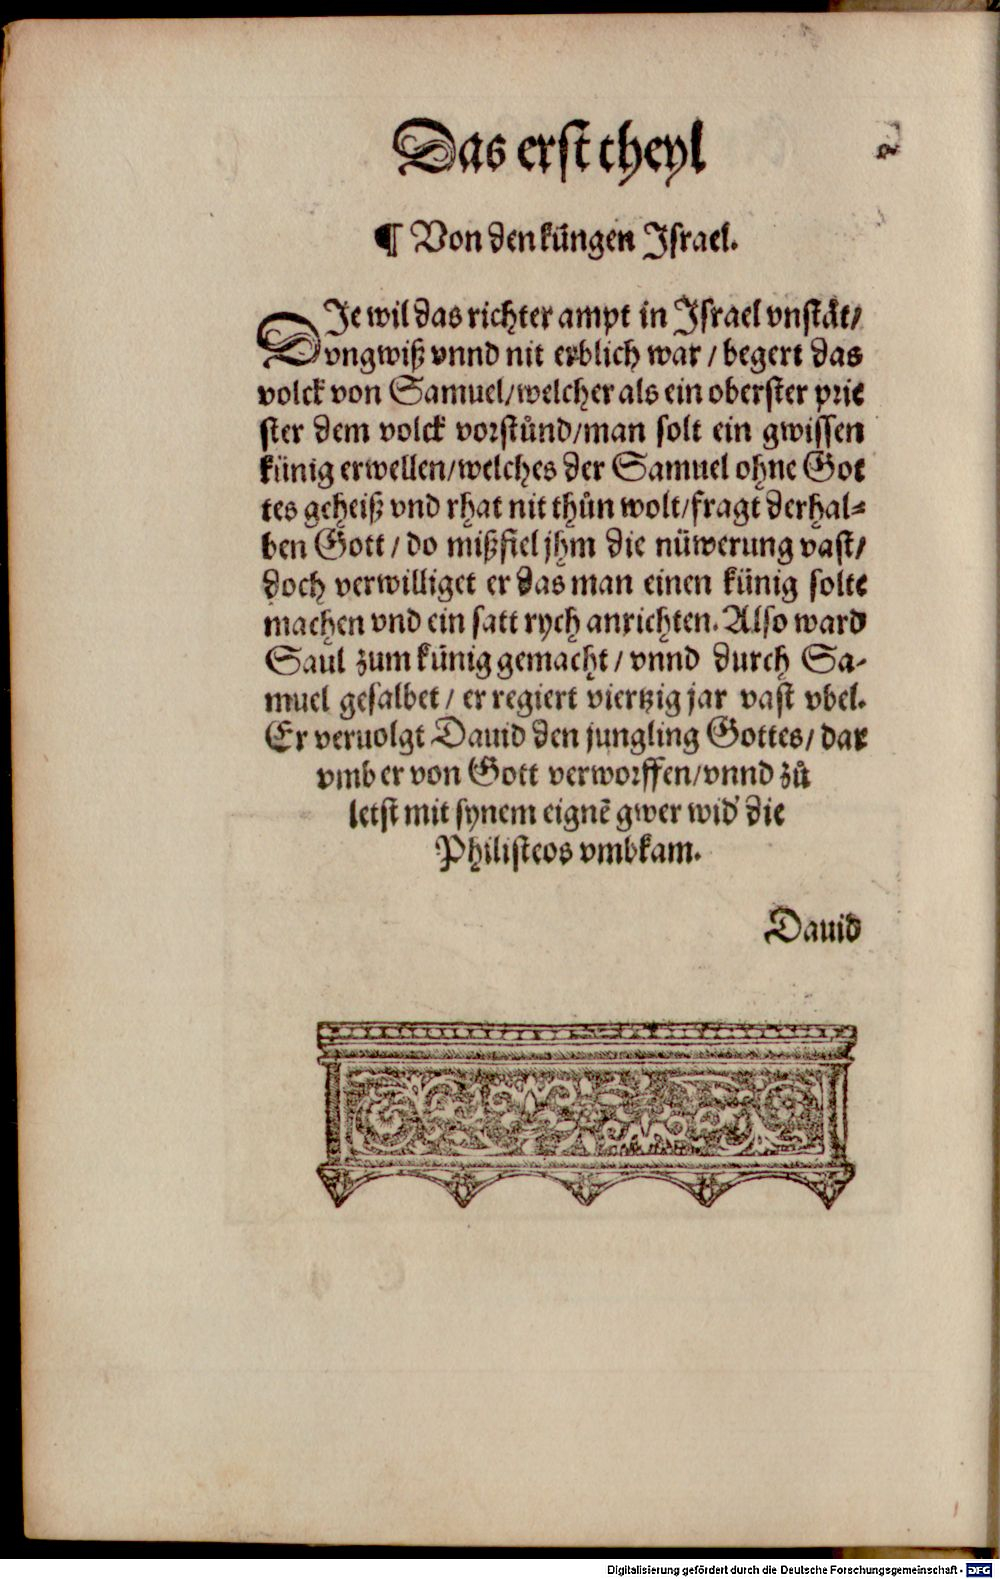 Das erst theyl
¶ Von den küngen Israel.
DJe wil das richter ampt in Israel vnstät/
vngwiß vnnd nit erblich war / begert das
volck von Samuel/welcher als ein oberster prie
ster dem volck vorstůnd/man solt ein gwissen
künig erwellen/welches der Samuel ohne Got
tes geheiß vnd rhat nit thůn wolt/fragt derhal⸗
ben Gott / do mißfiel jhm die nüwerung vast/
doch verwilliget er das man einen künig solte
machen vnd ein satt rych anrichten. Also ward
Saul zum künig gemacht / vnnd durch Sa-
muel gesalbet / er regiert viertzig jar vast vbel.
Er veruolgt Dauid den jungling Gottes/ dar
vmb er von Gott verworffen/vnnd zů
letst mit synem eignē gwer wid' die
Philisteos vmbkam.
Dauid
Digitalisierung gefördert durch die Deutsche Forschungsgemeinschaft - DFG